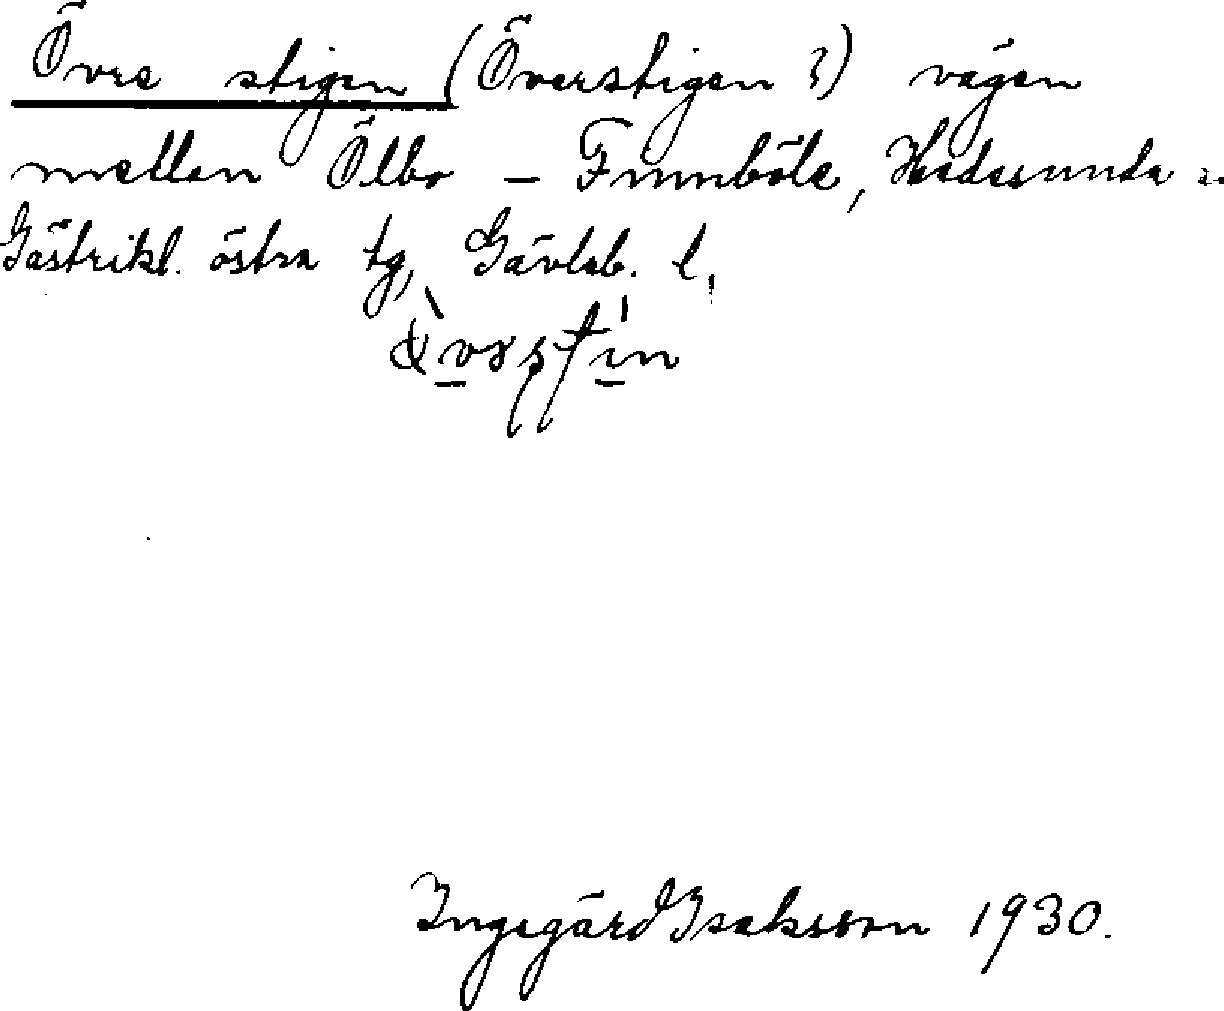 Övre stigen (Överstigen?) vägen
mellan Ölbo – Finnböle, Hedesunda sn
Gästrikl. östra tg, Gävleb. l.
Ingegärd Isaksson 1930.